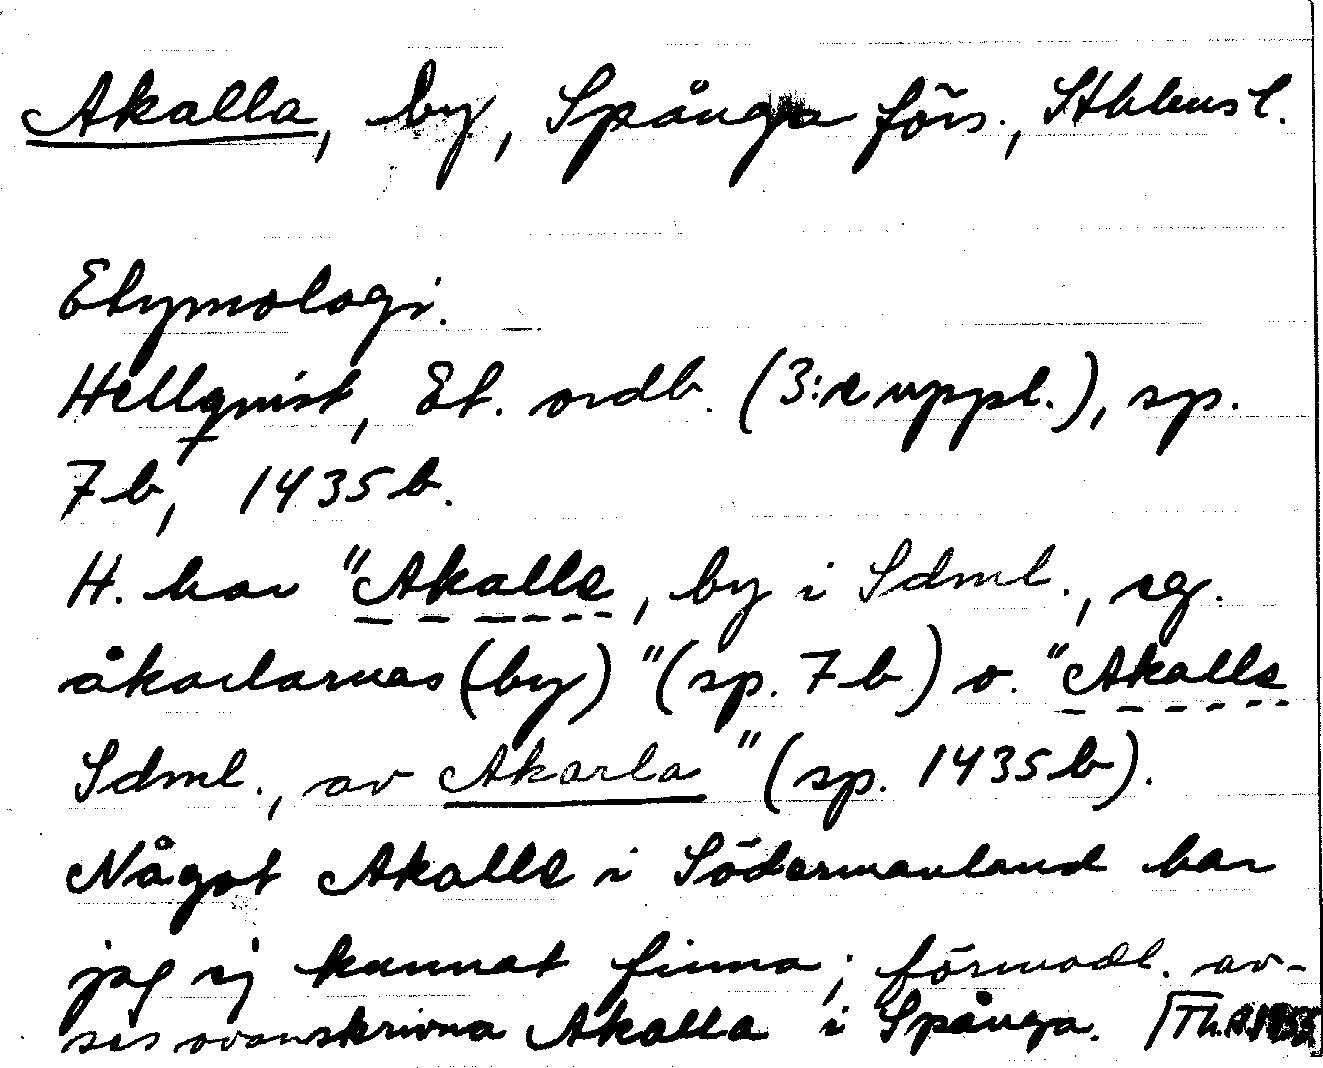 Akalla, by, Spånga förs., Sthlms l.
Etymologi.
Hellquist, Et. ordb. (3:e uppl.), sp.
7b, 1435b.
H. har "Akalle, by i Sdml., eg.
åkarlarnas (by)" (sp. 7b) o. "Akalle
Sdml., av Akarla" (sp. 1435b).
Något Akalle i Södermanland har
jag ej kunnat finna; förmodl. av-
ses ovanskrivna Akalla i Spånga.